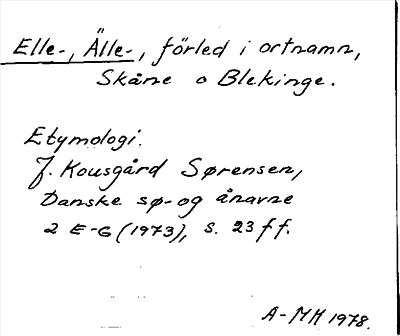 Elle-, Älle-, förled i ortnamn,
Skåne o Blekinge.
Etymologi:
J. Kousgård Sørensen,
Danske sø- og ånavne
2 E-G (1973), s. 23 ff.
A-MH 1978.